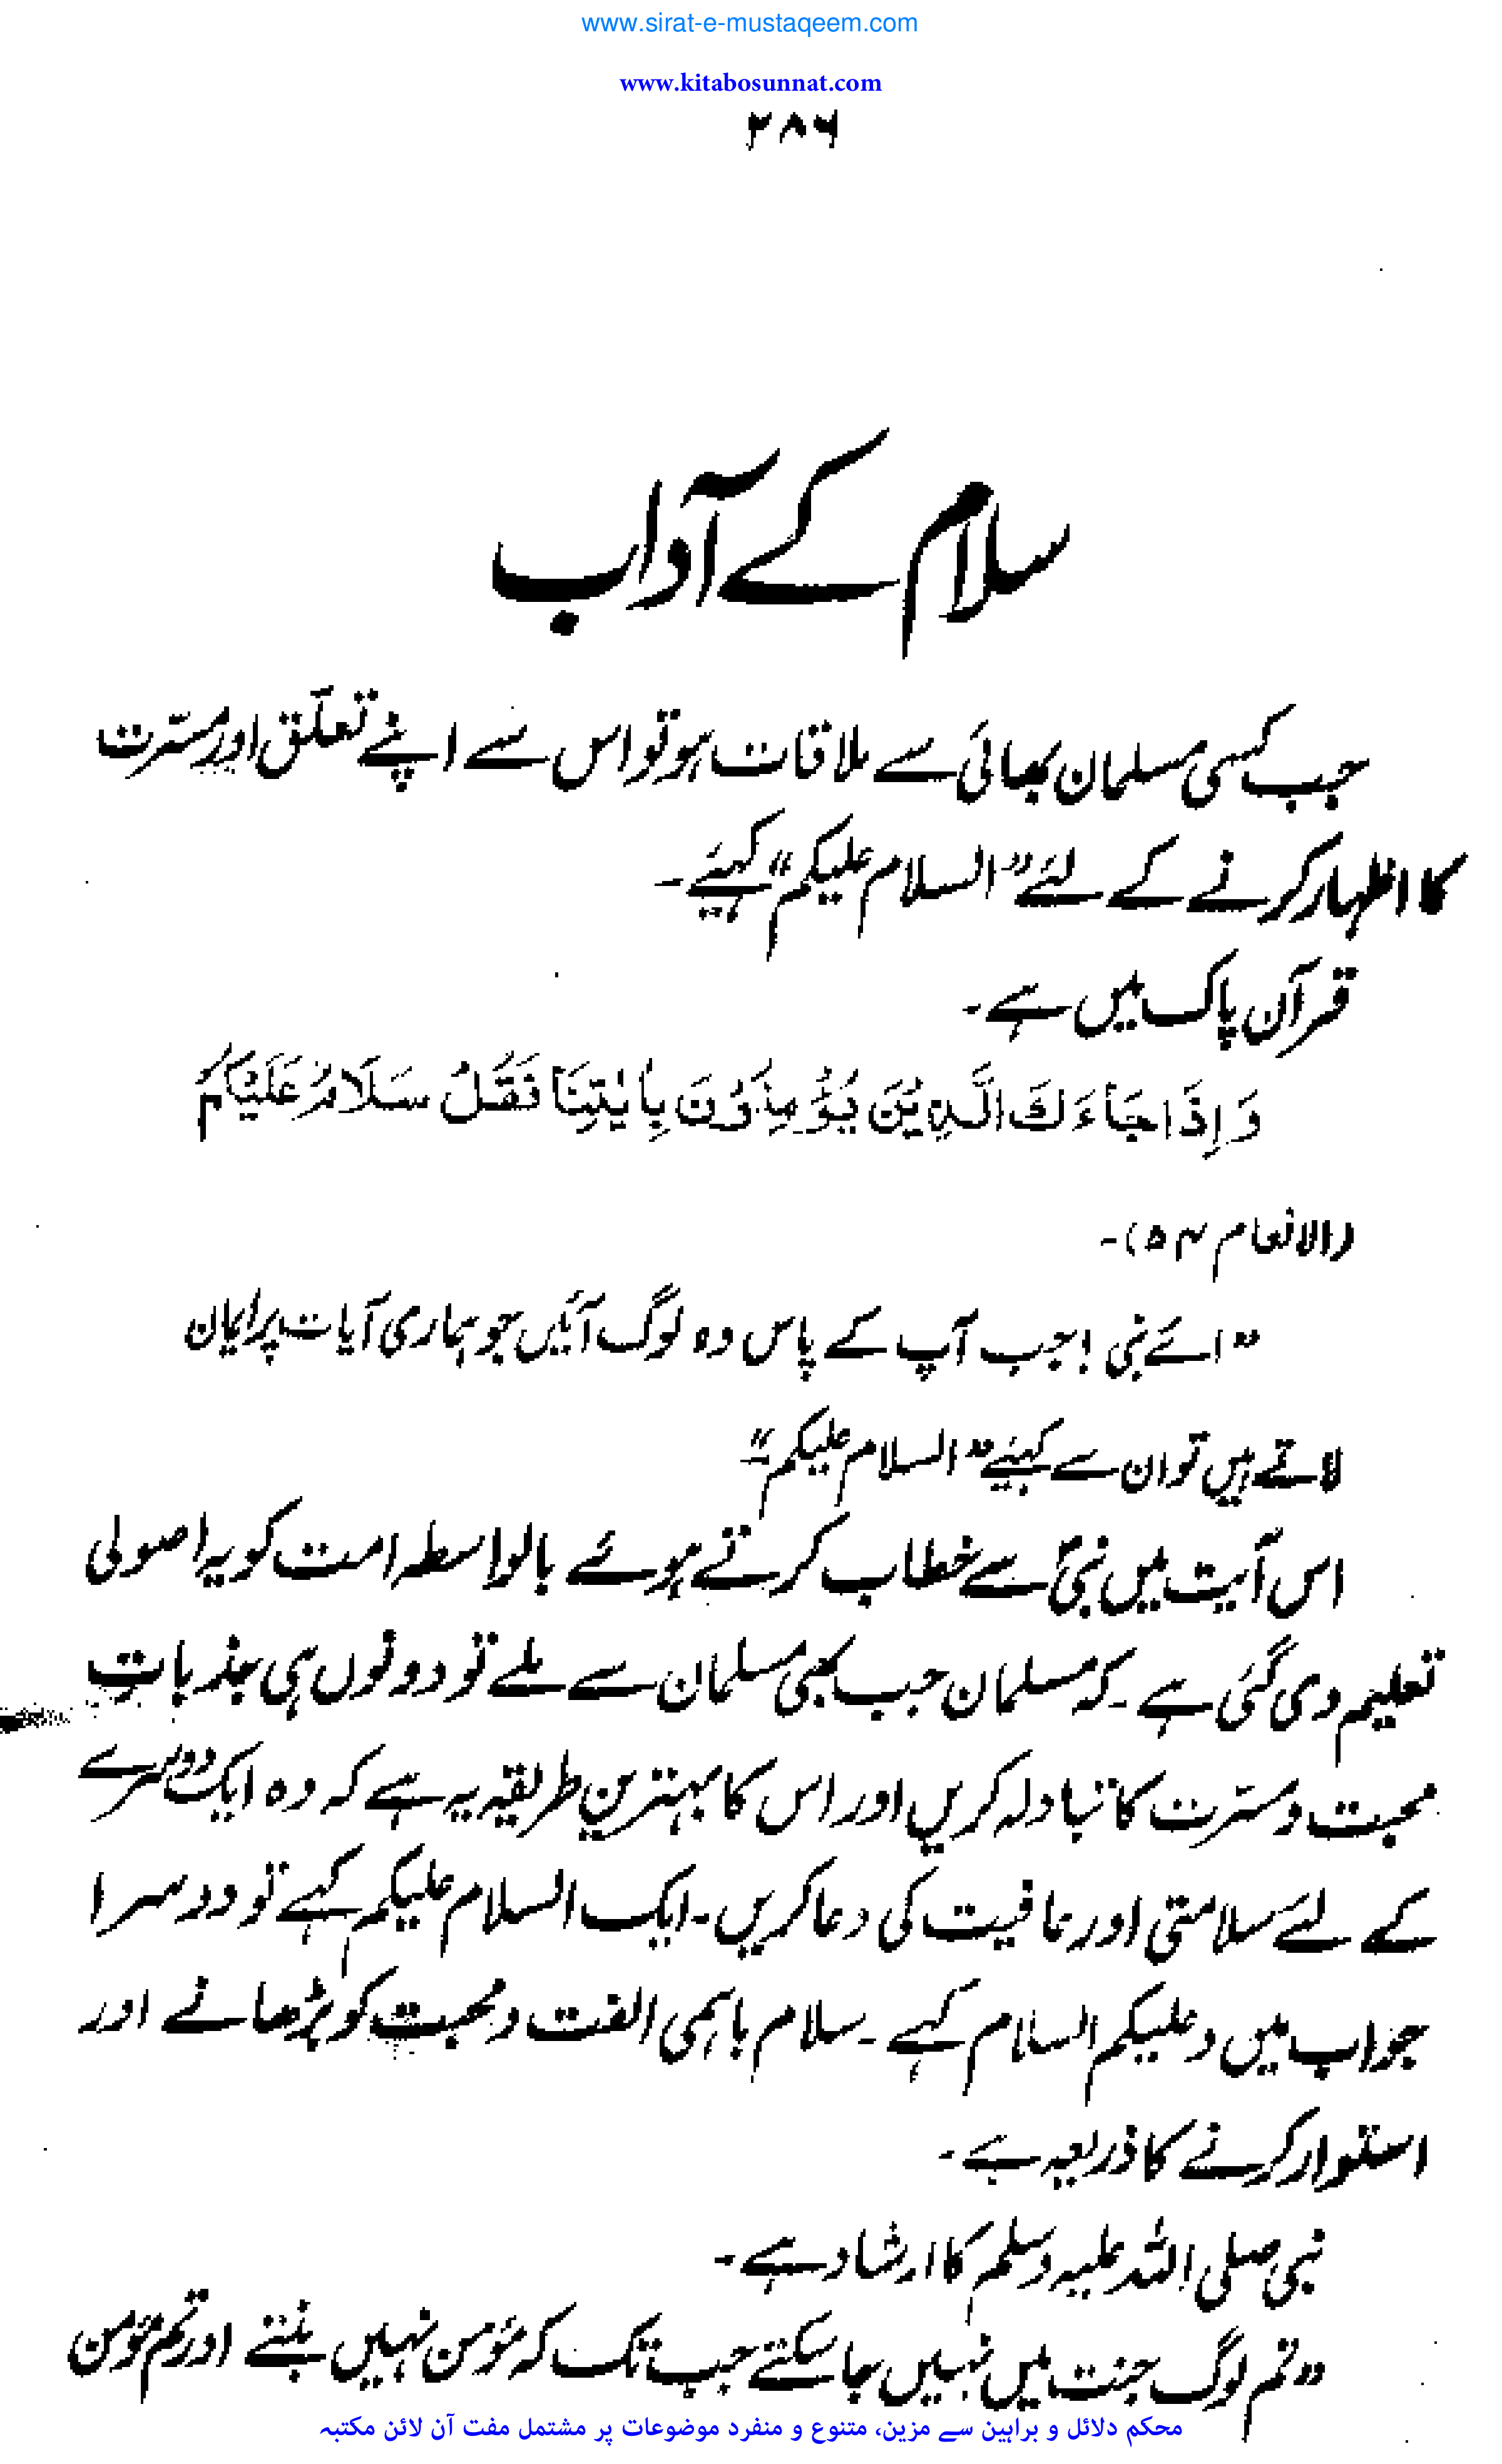 www.sirat-e-mustaqeem.com
www.kitabosunnat.com
۲۸۶
سلام کے آداب
جب کسی مسلمان بھائی سے ملاقات ہو تو اس سے اپنے تعلّق اور مسرّت
کا اظہار کرنے کے لئے ”السلام علیکم“ کہیئے۔
قرآن پاک میں ہے۔
وَاِذَا جَاءَكَ الَّذِيْنَ يُؤْمِنُوْنَ بِاٰيٰتِنَا فَقُلْ سَلَامٌ عَلَيْكُمْ
(الانعام ۵۴)۔
”ائے نبی! جب آپ کے پاس وہ لوگ آئیں جو ہماری آیات پر ایمان
لاتے ہیں تو ان سے کہیئے ”السلام علیکم“۔
اس آیت میں نبیؐ سے خطاب کرتے ہوئے بالواسطہ امت کو یہ اصولی
تعلیم دی گئی ہے۔ کہ مسلمان جب بھی مسلمان سے ملے تو دونوں ہی جذبات
محبت و مسرّت کا تبادلہ کریں اور اس کا بہترین طریقہ یہ ہے کہ وہ ایک دوسرے
کے لئے سلامتی اور عافیت کی دعا کریں۔ ایک السلام علیکم کہے تو دوسرا
جواب میں وعلیکم السلام کہے۔ سلام باہمی الفت و محبت کو بڑھانے اور
استوار کرنے کا ذریعہ ہے۔
نبی صلی اللہ علیہ وسلم کا ارشاد ہے۔
”تم لوگ جنت میں نہیں جا سکتے جب تک کہ مؤمن نہیں بنتے اور تم مؤمن
محکم دلائل و براہین سے مزین، متنوع و منفرد موضوعات پر مشتمل مفت آن لائن مکتبہ